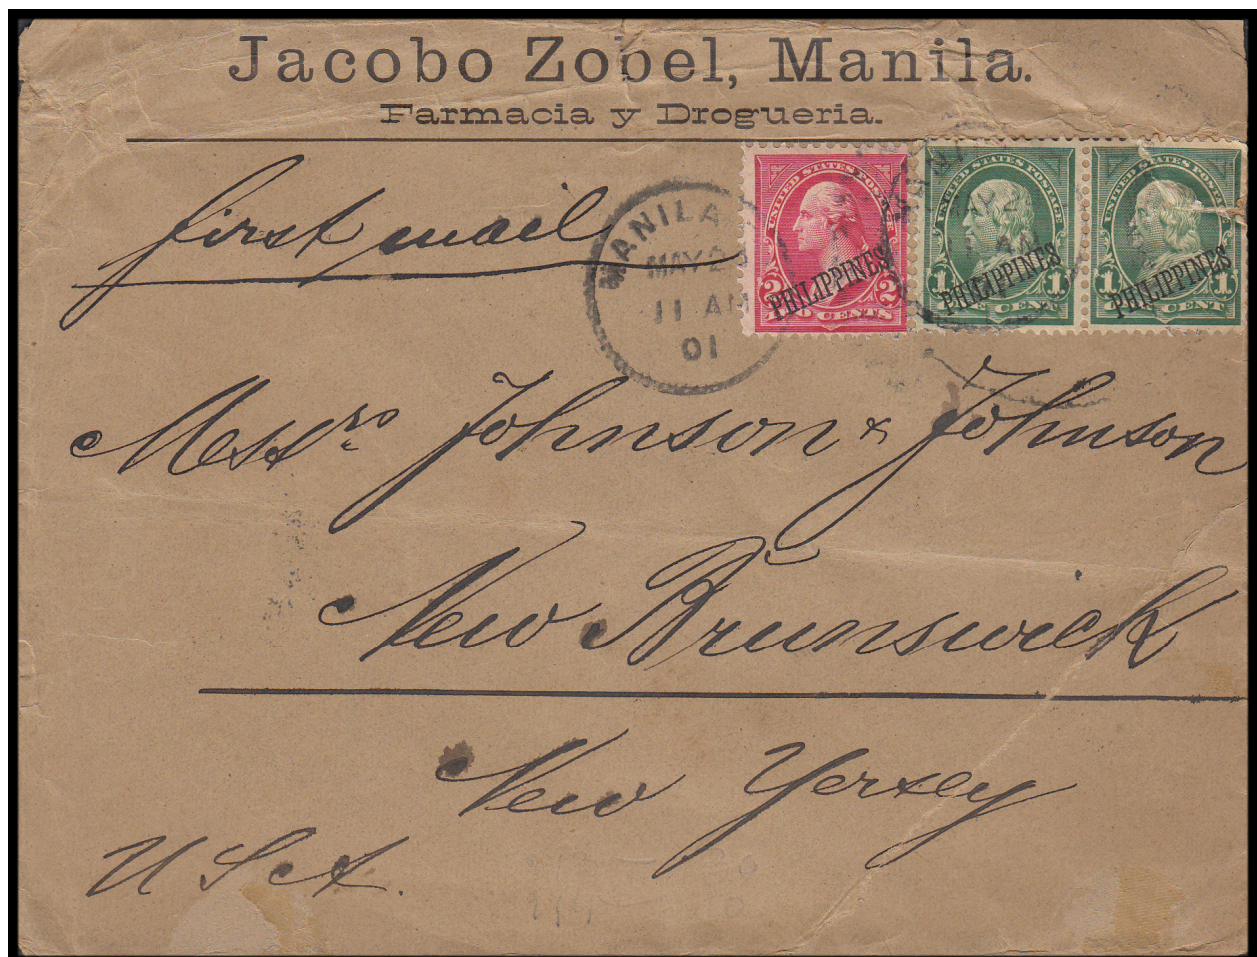 Jacobo Zobel, Manila.
Farmacia y Drogueria.
first mail
MANILA
MAY 2
11 AM
01
UNITED STATES POSTAGE
PHILIPPINES
2 CENTS 2
UNITED STATES POSTAGE
PHILIPPINES
1 CENT 1
UNITED STATES POSTAGE
PHILIPPINES
1 CENT 1
Messrs Johnson & Johnson
New Brunswick
New Yersey
U S A.